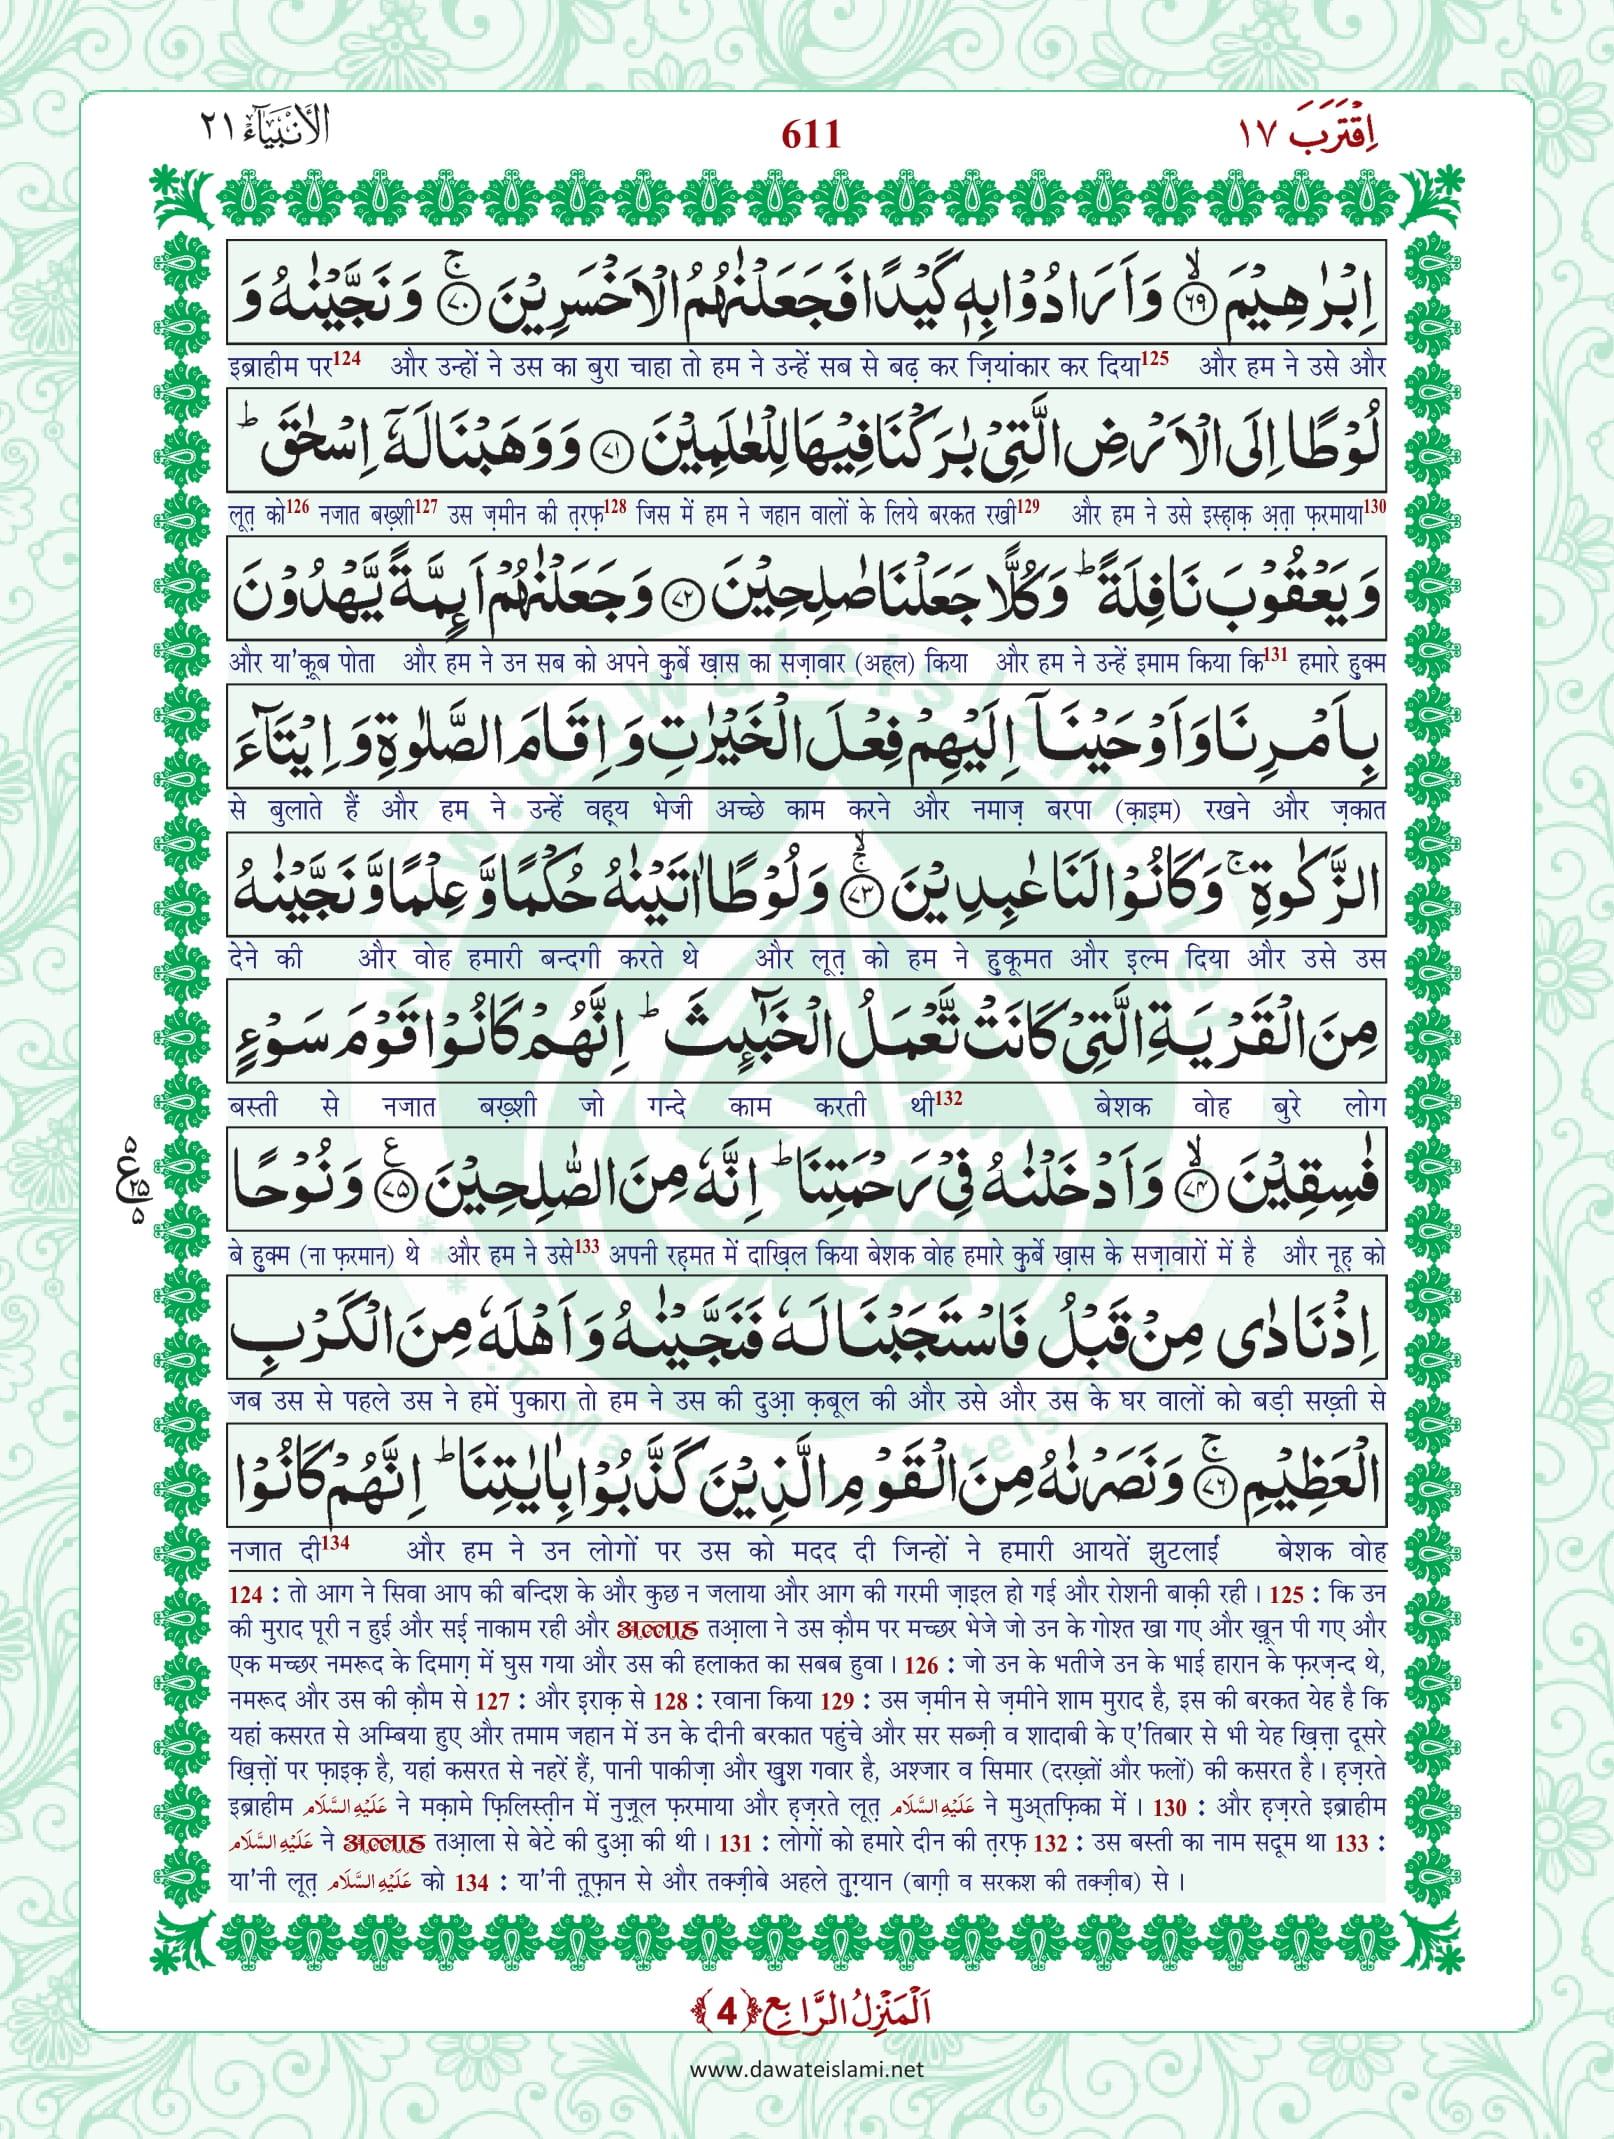 الأنبياء ٢١
611
اِقْتَرَبَ ١٧
اِبْرٰهِیْمَ ﴿۶۹﴾ۙ وَ اَرَادُوْا بِهٖ كَیْدًا فَجَعَلْنٰهُمُ الْاَخْسَرِیْنَ ﴿۷۰﴾ۚ وَ نَجَّیْنٰهُ وَ
इब्राहीम पर124 और उन्हों ने उस का बुरा चाहा तो हम ने उन्हें सब से बढ़ कर ज़ियांकार कर दिया125 और हम ने उसे और
لُوْطًا اِلَی الْاَرْضِ الَّتِیْ بٰرَكْنَا فِیْهَا لِلْعٰلَمِیْنَ ﴿۷۱﴾ وَ وَهَبْنَا لَهٗۤ اِسْحٰقَ ؕ
लूत़ को126 नजात बख़्शी127 उस ज़मीन की त़रफ़128 जिस में हम ने जहान वालों के लिये बरकत रखी129 और हम ने उसे इस्ह़ाक़ अ़त़ा फ़रमाया130
وَ یَعْقُوْبَ نَافِلَةً ؕ وَ كُلًّا جَعَلْنَا صٰلِحِیْنَ ﴿۷۲﴾ وَ جَعَلْنٰهُمْ اَىِٕمَّةً یَّهْدُوْنَ
और या'क़ूब पोता और हम ने उन सब को अपने क़ुर्बे ख़ास का सज़ावार (अहल) किया और हम ने उन्हें इमाम किया कि131 हमारे हुक्म
بِاَمْرِنَا وَ اَوْحَیْنَاۤ اِلَیْهِمْ فِعْلَ الْخَیْرٰتِ وَ اِقَامَ الصَّلٰوةِ وَ اِیْتَآءَ
से बुलाते हैं और हम ने उन्हें वह़्य भेजी अच्छे काम करने और नमाज़ बरपा (क़ाइम) रखने और ज़कात
الزَّكٰوةِ ۚ وَ كَانُوْا لَنَا عٰبِدِیْنَ ﴿۷۳﴾ۚۙ وَ لُوْطًا اٰتَیْنٰهُ حُكْمًا وَّ عِلْمًا وَّ نَجَّیْنٰهُ
देने की और वोह हमारी बन्दगी करते थे और लूत़ को हम ने हुकूमत और इल्म दिया और उसे उस
مِنَ الْقَرْیَةِ الَّتِیْ كَانَتْ تَّعْمَلُ الْخَبٰٓىِٕثَ ؕ اِنَّهُمْ كَانُوْا قَوْمَ سَوْءٍ
बस्ती से नजात बख़्शी जो गन्दे काम करती थी132 बेशक वोह बुरे लोग
فٰسِقِیْنَ ﴿۷۴﴾ۙ وَ اَدْخَلْنٰهُ فِیْ رَحْمَتِنَا ؕ اِنَّهٗ مِنَ الصّٰلِحِیْنَ ﴿۷۵﴾ع وَ نُوْحًا
बे हुक्म (ना फ़रमान) थे और हम ने उसे133 अपनी रह़मत में दाख़िल किया बेशक वोह हमारे क़ुर्बे ख़ास के सज़ावारों में है और नूह़ को
اِذْ نَادٰی مِنْ قَبْلُ فَاسْتَجَبْنَا لَهٗ فَنَجَّیْنٰهُ وَ اَهْلَهٗ مِنَ الْكَرْبِ
जब उस से पहले उस ने हमें पुकारा तो हम ने उस की दुआ़ क़बूल की और उसे और उस के घर वालों को बड़ी सख़्ती से
الْعَظِیْمِ ﴿۷۶﴾ۚ وَ نَصَرْنٰهُ مِنَ الْقَوْمِ الَّذِیْنَ كَذَّبُوْا بِاٰیٰتِنَا ؕ اِنَّهُمْ كَانُوْا
नजात दी134 और हम ने उन लोगों पर उस को मदद दी जिन्हों ने हमारी आयतें झुटलाईं बेशक वोह
124 : तो आग ने सिवा आप की बन्दिश के और कुछ न जलाया और आग की गरमी ज़ाइल हो गई और रोशनी बाक़ी रही। 125 : कि उन
की मुराद पूरी न हुई और सई नाकाम रही और अल्लाह तआ़ला ने उस क़ौम पर मच्छर भेजे जो उन के गोश्त खा गए और ख़ून पी गए और
एक मच्छर नमरूद के दिमाग़ में घुस गया और उस की हलाकत का सबब हुवा। 126 : जो उन के भतीजे उन के भाई हारान के फ़रज़न्द थे,
नमरूद और उस की क़ौम से 127 : और इराक़ से 128 : रवाना किया 129 : उस ज़मीन से ज़मीने शाम मुराद है, इस की बरकत येह है कि
यहां कसरत से अम्बिया हुए और तमाम जहान में उन के दीनी बरकात पहुंचे और सर सब्ज़ी व शादाबी के ए'तिबार से भी येह ख़ित़्त़ा दूसरे
ख़ित़्त़ों पर फ़ाइक़ है, यहां कसरत से नहरें हैं, पानी पाकीज़ा और ख़ुश गवार है, अश्जार व सिमार (दरख़्तों और फलों) की कसरत है। ह़ज़रते
इब्राहीम عَلَيْهِ السَّلَام ने मक़ामे फ़िलिस्त़ीन में नुज़ूल फ़रमाया और ह़ज़रते लूत़ عَلَيْهِ السَّلَام ने मुअ्तफ़िका में। 130 : और ह़ज़रते इब्राहीम
عَلَيْهِ السَّلَام ने अल्लाह तआ़ला से बेटे की दुआ़ की थी। 131 : लोगों को हमारे दीन की त़रफ़ 132 : उस बस्ती का नाम सदूम था 133 :
या'नी लूत़ عَلَيْهِ السَّلَام को 134 : या'नी त़ूफ़ान से और तक्ज़ीबे अहले त़ुग़्यान (बाग़ी व सरकश की तक्ज़ीब) से।
اَلْمَنْزِلُ الرَّابِع ﴿4﴾
www.dawateislami.net